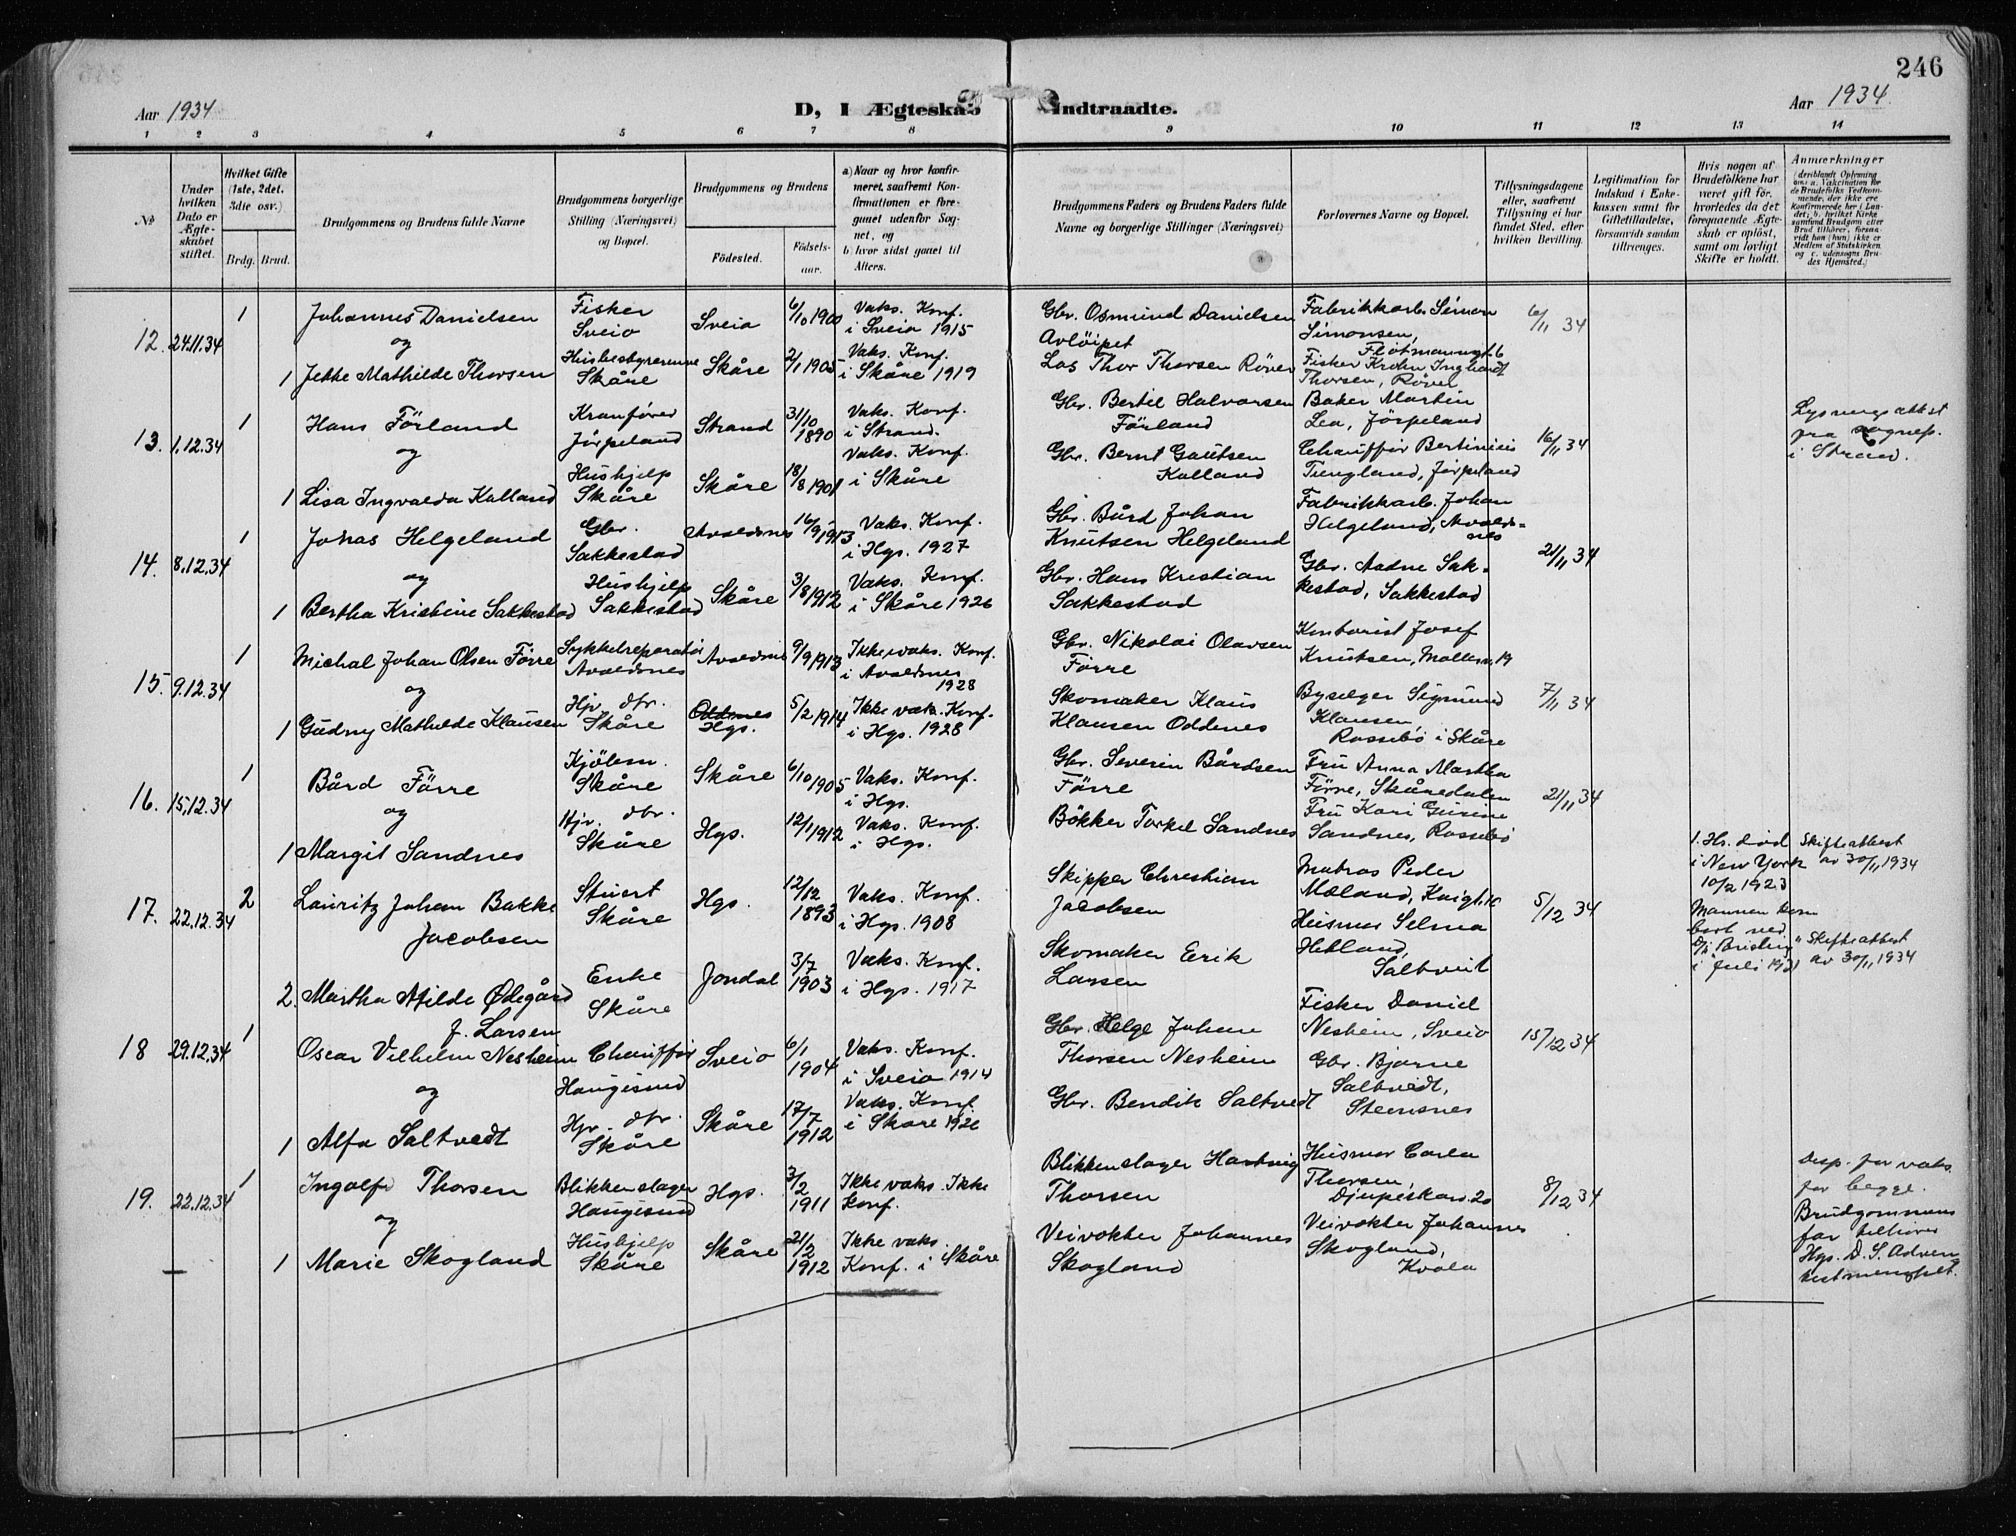 246
Aar 1934
D, I Ægteskab Indtraadte.
Aar 1934.
1 2 3 4 5 6 7 8 9 10 11 12 13 14
№
Under hvilken Dato er Ægteskabet stiftet.
Hvilket Gifte (1ste, 2det, 3die osv.)
Brdg. Brud.
Brudgommens og Brudens fulde Navne
Brudgommens borgerlige Stilling (Næringsvei) og Bopæl.
Brudgommens og Brudens
Födested.
Födselsaar.
a) Naar og hvor konfirmeret, saafremt Konfirmationen er foregaaet udenfor Sognet, og
b) hvor sidst gaaet til Alters.
Brudgommens Faders og Brudens Faders fulde Navne og borgerlige Stillinger (Næringsvei)
Forlovernes Navne og Bopæl.
Tillysningsdagene eller, saafremt Tillysning ei har fundet Sted, efter hvilken Bevilling.
Legitimation for Indskud i Enkekassen samt for Giftetilladelse, forsaavidt saadan tiltrænges.
Hvis nogen af Brudefolkene har været gift för, hvorledes da det foregaaende Ægteskab er oplöst, samt om lovligt Skifte er holdt.
Anmærkninger
(deriblandt Oplysning om: a. Vaccination for de Brudefolks Vedkommende, der ikke ere Konfirmerede her i Landet; b. hvilket Kirkesamfund Brudgom eller Brud tilhører, forsaavidt han (hun) ikke er Medlem af Statskirken og c. udensogns Brudes Hjemsted.)
12. 24.11.34 1 Johannes Danielsen Fisker Sveio Sveio 6/10 1900 Vaks. Konf. i Sveio 1915 Gbr. Osmund Danielsen Avlöipet Fabrikkarb. Simon Simonsen, Flotmannsgt. 6 6/11 34
og
1 Jekke Mathilde Thorsen Husbestyrerinne Skåre Skåre 2/1 1905 Vaks. Konf. i Skåre 1919 Los Thor Thorsen Röver Fisker Krohn Inghardt Thorsen, Röver
13. 1.12.34 1 Hans Förland Kranförer Jörpeland Strand 31/10 1890 Vaks. Konf. i Strand. Gbr. Bertil Halvorsen Förland Baker Martin Lea, Jörpeland 16/11 34 Lysningsattest fra sognep. i Strand.
og
1 Lisa Ingvalda Kalland Hushjelp Skåre Skåre 18/8 1901 Vaks. Konf. i Skåre Gbr. Bernt Gautsen Kalland Chaufför Bertinius Tungland, Jörpeland
14. 8.12.34 1 Jonas Helgeland Gbr. Sakkestad Avaldsnes 16/9 1913 Vaks. Konf. i Hgs. 1927 Gbr. Bård Johan Knutsen Helgeland Fabrikkarb. Johan Helgeland, Avaldsnes 21/11 34
og
1 Bertha Kristine Sakkestad Hushjelp Sakkestad Skåre 3/8 1912 Vaks. Konf. i Skåre 1926 Gbr. Hans Kristian Sakkestad Gbr. Aadne Sakkestad, Sakkestad
15. 9.12.34 1 Michal Johan Olsen Förre Sykkelreparatör Avaldsnes Avaldsnes 9/9 1913 Ikke vaks. Konf. i Avaldsnes 1928 Gbr. Nikolai Olavsen Förre Kontorist Josef Knutsen, Mollerv. 19 7/11 34
og
1 Gudny Mathilde Klausen Hjv. dtr. Skåre Oddenes Hgs. 5/2 1914 Ikke vak. Konf. i Hgs. 1928 Skomaker Klaus Klausen Oddenes Byselger Sigmund Klausen, Rossebö i Skåre
16. 15.12.34 1 Bård Förre Kjölem. Skåre Skåre 6/10 1905 Vaks. Konf. i Hgs. Gbr. Severin Bårdsen Förre Fru Anna Martha Förre, Skåredalen 21/11 34
og
1 Margit Sandnes Hjv. dtr. Skåre Hgs. 12/1 1912 Vaks. Konf. i Hgs. Bökker Torkel Sandnes Fru Kari Gurine Sandnes, Rossebö
17. 22.12.34 2 Lauritz Johan Bakke Jacobsen Stuert Skåre Hgs. 12/12 1893 Vaks. Konf. i Hgs. 1908 Skipper Christian Jacobsen Matros Peder Mæland, 5/12 34 1. Hs. död i New York 10/2 1923 Skifteattest av 30/11 1934
2. Martha Afilde Ødegård f. Larsen Enke Skåre Jondal 3/7 1903 Vaks. Konf. i Hgs. 1917 Skomaker Erik Larsen Husmor Selma Hetland, Saltveit Mannen kom bort med "Brisling" i Juli 1931 Skifteattest av 30/11 1934
18 29.12.34 1 Oscar Vilhelm Nesheim Chaufför Haugesund Sveio 6/1 1904 Vaks. Konf. i Sveio 1914 Gbr. Helge Johan Thorsen Nesheim Fisker Daniel Nesheim, Sveio 15/12 34
og
1 Alfa Saltvedt Hjv. dtr. Skåre Skåre 17/7 1912 Vaks. Konf. i Skåre 1926 Gbr. Bendik Saltvedt Gbr. Bjarne Saltvedt, Stemsnes
19. 22.12.34 1 Ingolf Thorsen Blikkenslager Haugesund Hgs. 3/2 1911 Ikke vaks. Ikke Konf. Blikkenslager Hartvig Thorsen Husmor Carla Thorsen, Djupeskar. 20 8/12 34 Disp. for vaks. for begge.
og
1 Marie Skogland Hushjelp Skåre Skåre 21/2 1912 Ikke vaks. Konf. i Skåre Veivokter Johannes Skogland Veivokter Johannes Skogland, Kvala Brudgommens far tilhörer Hgs. D. S. Adventistmenighet.